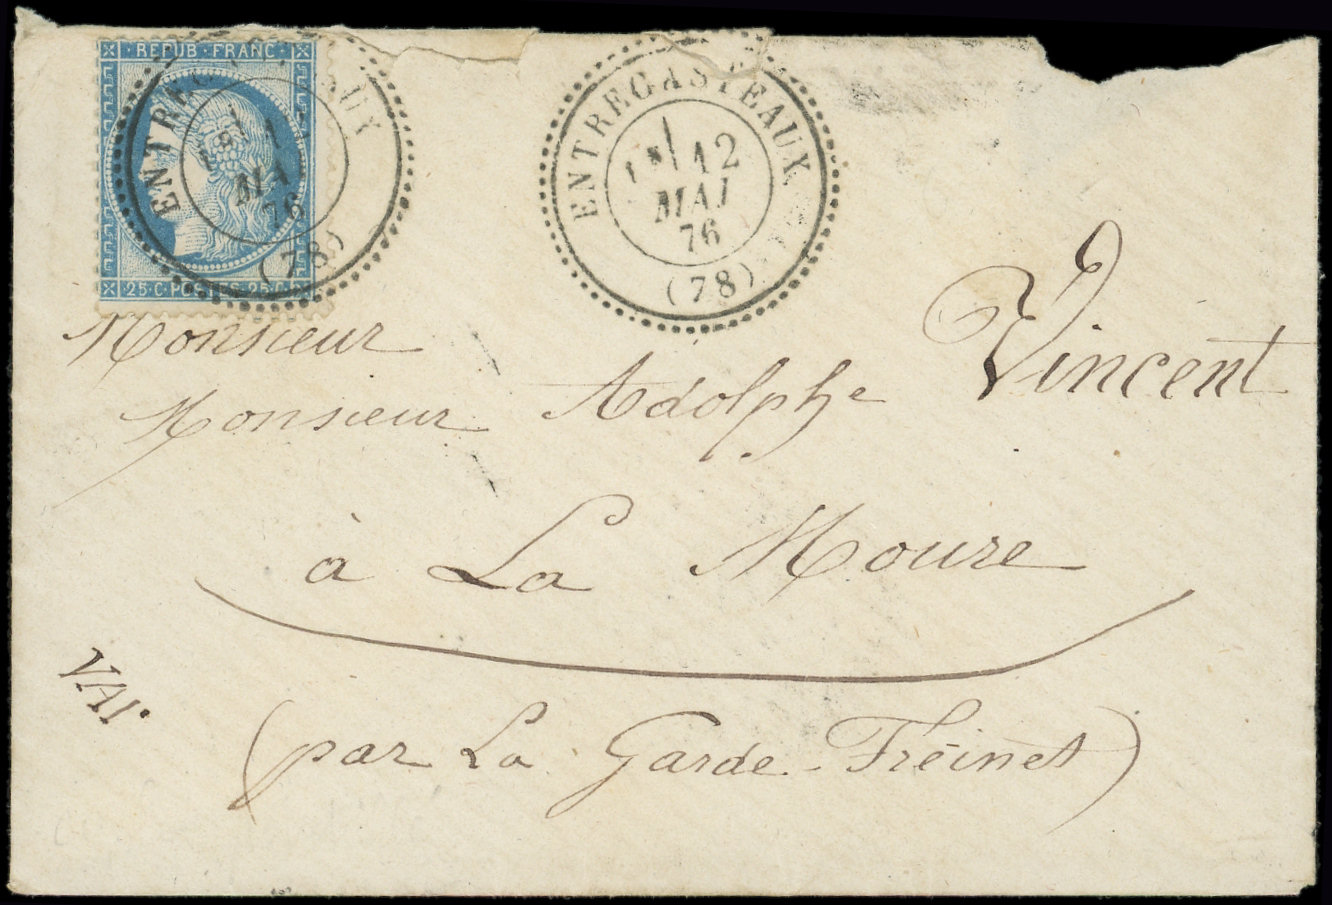 REPUB · FRANC
25 · C · POSTES · 25 · C
ENTREGASTEAUX
1
MAI
76
(78)
ENTREGASTEAUX
12
MAI
76
(78)
Monsieur
Monsieur Adolphe Vincent
à La Moure
(par La Garde-Freinet)